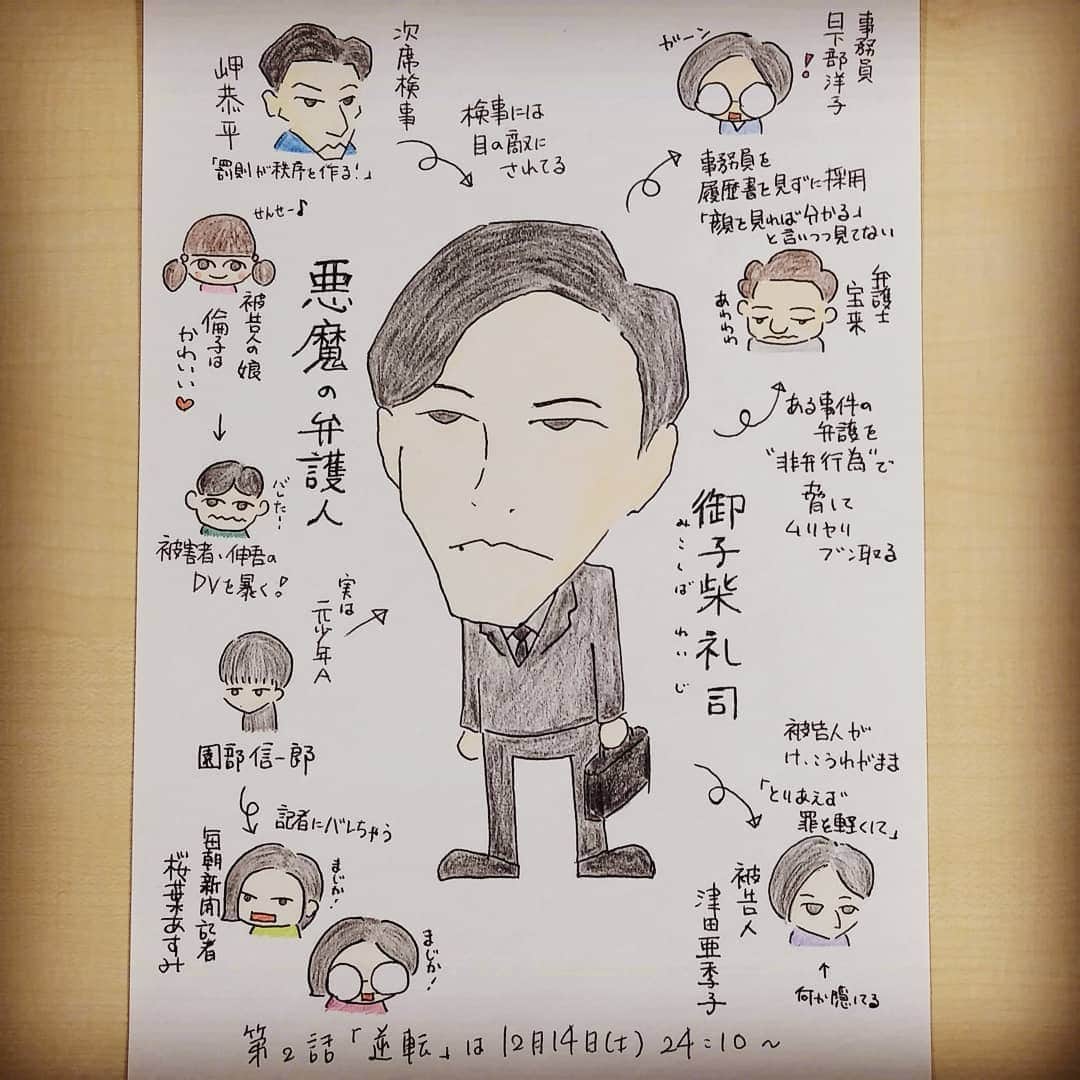 次席検事
岬恭平
「罰則が秩序を作る!」
検事には
目の敵に
されてる
事務員
日下部洋子
ガーン
!
事務員を
履歴書を見ずに採用
「顔を見れば分かる」
と言いつつ見てない
せんせー♪
被告人の娘
倫子は
かわいい♥
悪魔の弁護人
弁護士
宝来
あわわわ
ある事件の
弁護を
"非弁行為"で
脅して
ムリヤリ
ブン取る
バレたー!
被害者・伸吾の
DVを暴く!
御子柴礼司
みこしば れいじ
実は
元少年A
園部信一郎
記者にバレちゃう
毎朝新聞記者
桜葉あすみ
まじか!
まじか!
被告人が
けっこうわがまま
「とりあえず
罪を軽くして」
被告人
津田亜季子
↑
何か隠してる
第2話「逆転」は12月14日(土) 24:10~